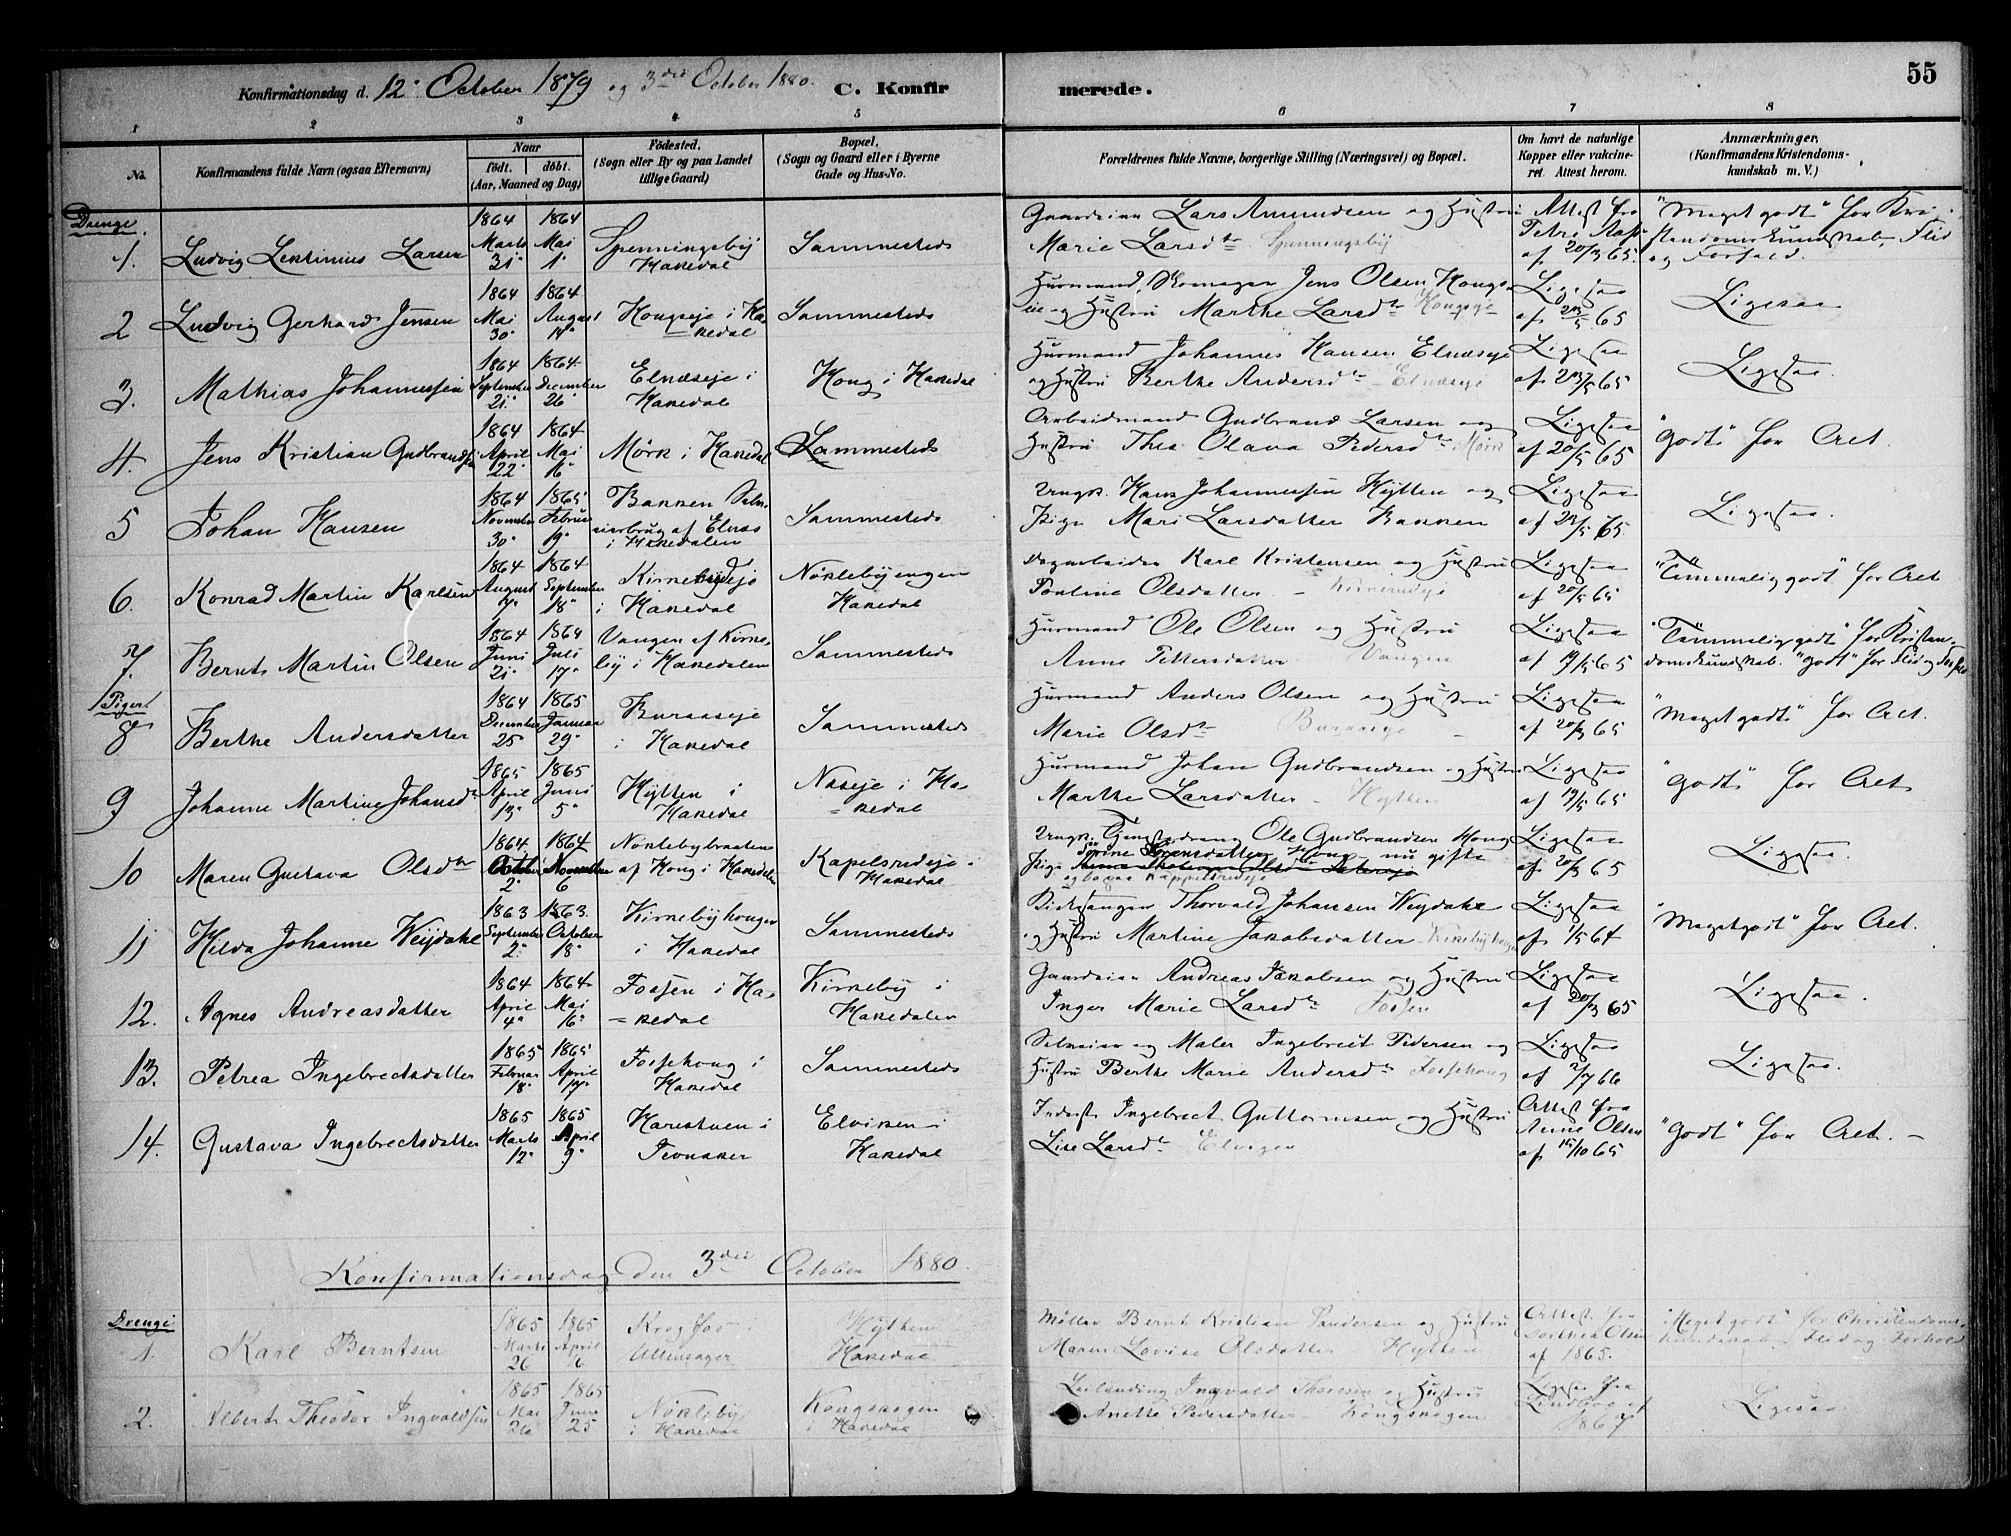 55
Konfirmationsdag d. 12te October 1879 og 3die October 1880. C. Konfirmerede.
1 2 3 4 5 6 7 8
No.
Konfirmandens fulde Navn (ogsaa Efternavn)
Naar
født. døbt.
(Aar, Maaned og Dag)
Fødested.
(Sogn eller By og paa Landet
tillige Gaard)
Bopæl.
(Sogn og Gaard eller i Byerne
Gade og Hus-No.
Forældrenes fulde Navne, borgerlige Stilling (Næringsvei) og Bopæl.
Om havt de naturlige
Kopper eller vakcine-
ret. Attest herom.
Anmærkninger.
(Konfirmandens Kristendoms-
kundskab m. V.)
Drenge
1. Ludvig Larsen
1864 Marts 31
1864 Mai 1
Spenningsby Hakedal
Sammesteds
Gaardeier Lars Amundsen og Hustru
Marie Larsdtr Spenningsby
Attest fra
af 20/3 65.
"Meget godt" for Kri-
stendomskundskab, Flid
og Forhold.
2 Ludvig Gerhard Jensen
1864 Mai 30
1864 August 14
Hougseje i Ha-
kedal
Sammesteds
Husmand, Skomager Jens Olsen Hougs-
eie og Hustru Marthe Larsdtr Hougseje
Ligesaa
af 65
Ligesaa
3. Mathias Johannessen
1864 September 21
1864 December 26
Elnæseje i
Hakedal
Houg i Hakedal
Husmand Johannes Hansen Elnæseje
og Hustru Berthe Andersdtr Elnæseje
Ligesaa
af 65
Ligesaa.
4. Jens Kristian Gudbrandsen
1864 April 22
1864 Mai 16
Mørk i Hakedal
Sammesteds
Arbeidmand Gudbrand Larsen og
Hustru Thea Olava Pedersdtr Mørk
Ligesaa
af 20/5 65
"Godt" for Alt.
5 Johan Hansen
1864 November 30
1865 Februar 19
Bakken Selv-
eierbrug af Elnæs
i Hakedalen
Sammesteds
Ungk. Hans Johannessen Hytten og
Pige Mari Larsdatter Bakken
Ligesaa
af 65
Ligesaa.
6. Konrad Martin Karlsen
1864 August 7
1864 September 18
i Hakedal
Nöklebyengen
Hakedal
Dagarbeider Karl Kristensen og Hustru
Olsdatter
Ligesaa
af 20/5 65
"Tämmelig godt" for Alt
7. Bernt Martin Olsen
1864 Juni 21
1864 Juli 17
Vangen af Kirke-
by i Hakedalen
Sammesteds
Husmand Ole Olsen og Hustru
Anne Pettersdatter Vangen
Ligesaa
af 19/5 65
"Tämmelig godt" for Kristen-
domskundskab. "godt" for Flid og Forhold
Piger
8 Berthe Andersdatter
1864 December 25
1865 Januar 29
Buraaseje
i Hakedal
Sammesteds
Husmand Anders Olsen og Hustru
Marie Olsdtr Buraaseje
Ligesaa
af 20/3 65
"Meget godt" for Alt.
9 Johanne Martine Johansdtr
1865 April 13
1865 Juni 5
Hytten i
Hakedal
Næseje i Ha-
kedal
Husmand Johan Gudbrandsen og Hustru
Marthe Larsdatter Hytten
Ligesaa
af 19/5 65
"Godt" for Alt
10 Maren Gustava Olsdtr
1864 October 2
1864 November 6
Nöklebybraaten
af Houg i Hakedalen
Kapelsrudeje i
Hakedal
Ungk. Tjenestedreng Ole Gudbrandsen Houg
Pige Sörensdatter Houg nu gifte
og bopaa Kappelsrudeje
Ligesaa
af 20/3 65
Ligesaa.
11 Hilda Johanne Weydahl
1863 September 2
1863. October 18
Kirkebyhougen
i Hakedal
Sammesteds
Kirkesanger Thorvald Johansen Weydahl
og Hustru Martine Jakobsdatter Kirkebyhougen
Ligesaa
af 1/5 64
"Meget godt" for Alt.
12. Agnes Andreasdatter
1864 April 4
1864 Mai 16
Fossen i Ha-
kedal
Kirkeby i
Hakedalen
Gaardeier Andreas Jakobsen og Hustru
Inger Marie Larsdtr Fossen
Ligesaa
af 20/3 65
Ligesaa.
13. Petrea Ingebrectsdatter
1865 Februar 18
1865 April 17
Fossehoug i
Hakedal
Sammesteds
Selveier og Maler Ingebrect Pedersen og
Hustru Berthe Marie Andersdtr Fossehoug
Ligesaa
af 2/7 66
Ligesaa.
14. Gustava Ingebrectsdatter
1865 Marts 12
1865 April 9
Harestuen i
Jevnaker
Elviken i
Hakedal
Inderst Ingebrect Guttormsen og Hustru
Lise Larsdtr Elvigen
Attest fra
Anne Olsen
af 15/10 65
"Godt" for Alt.
Konfirmationsdag Den 3die October 1880.
Drenge
1. Karl Berntsen
1865 Marts 26
1865 April 16
Krogfos i
Ullensager
Hytten
Hakedal
Møller Bernt Kristian Pandersen og Hustru
Maren Lovise Olsdatter Hytten
Attest fra
Dorthea Olsen
af 1865.
"Meget godt" for Christendoms-
kundskab, Flid og Forhold
2. Albert Theodor Ingvaldsen
1865 Mai 26
1865 Juni 25
Nökleby
i Hakedal
Kongskogen
i Hakedal
Leilending Ingvald Thoresen og Hustru
Anette Pedersdatter Kongskogen
Ligesaa fra
af
1867
Ligesaa